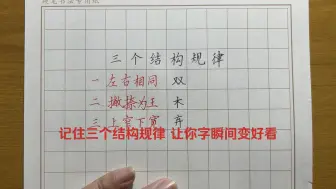 三个结构规律
一 左右相同 双
二 撇捺为王 木
三 上窄下宽 弃
记住三个结构规律 让你字瞬间变好看